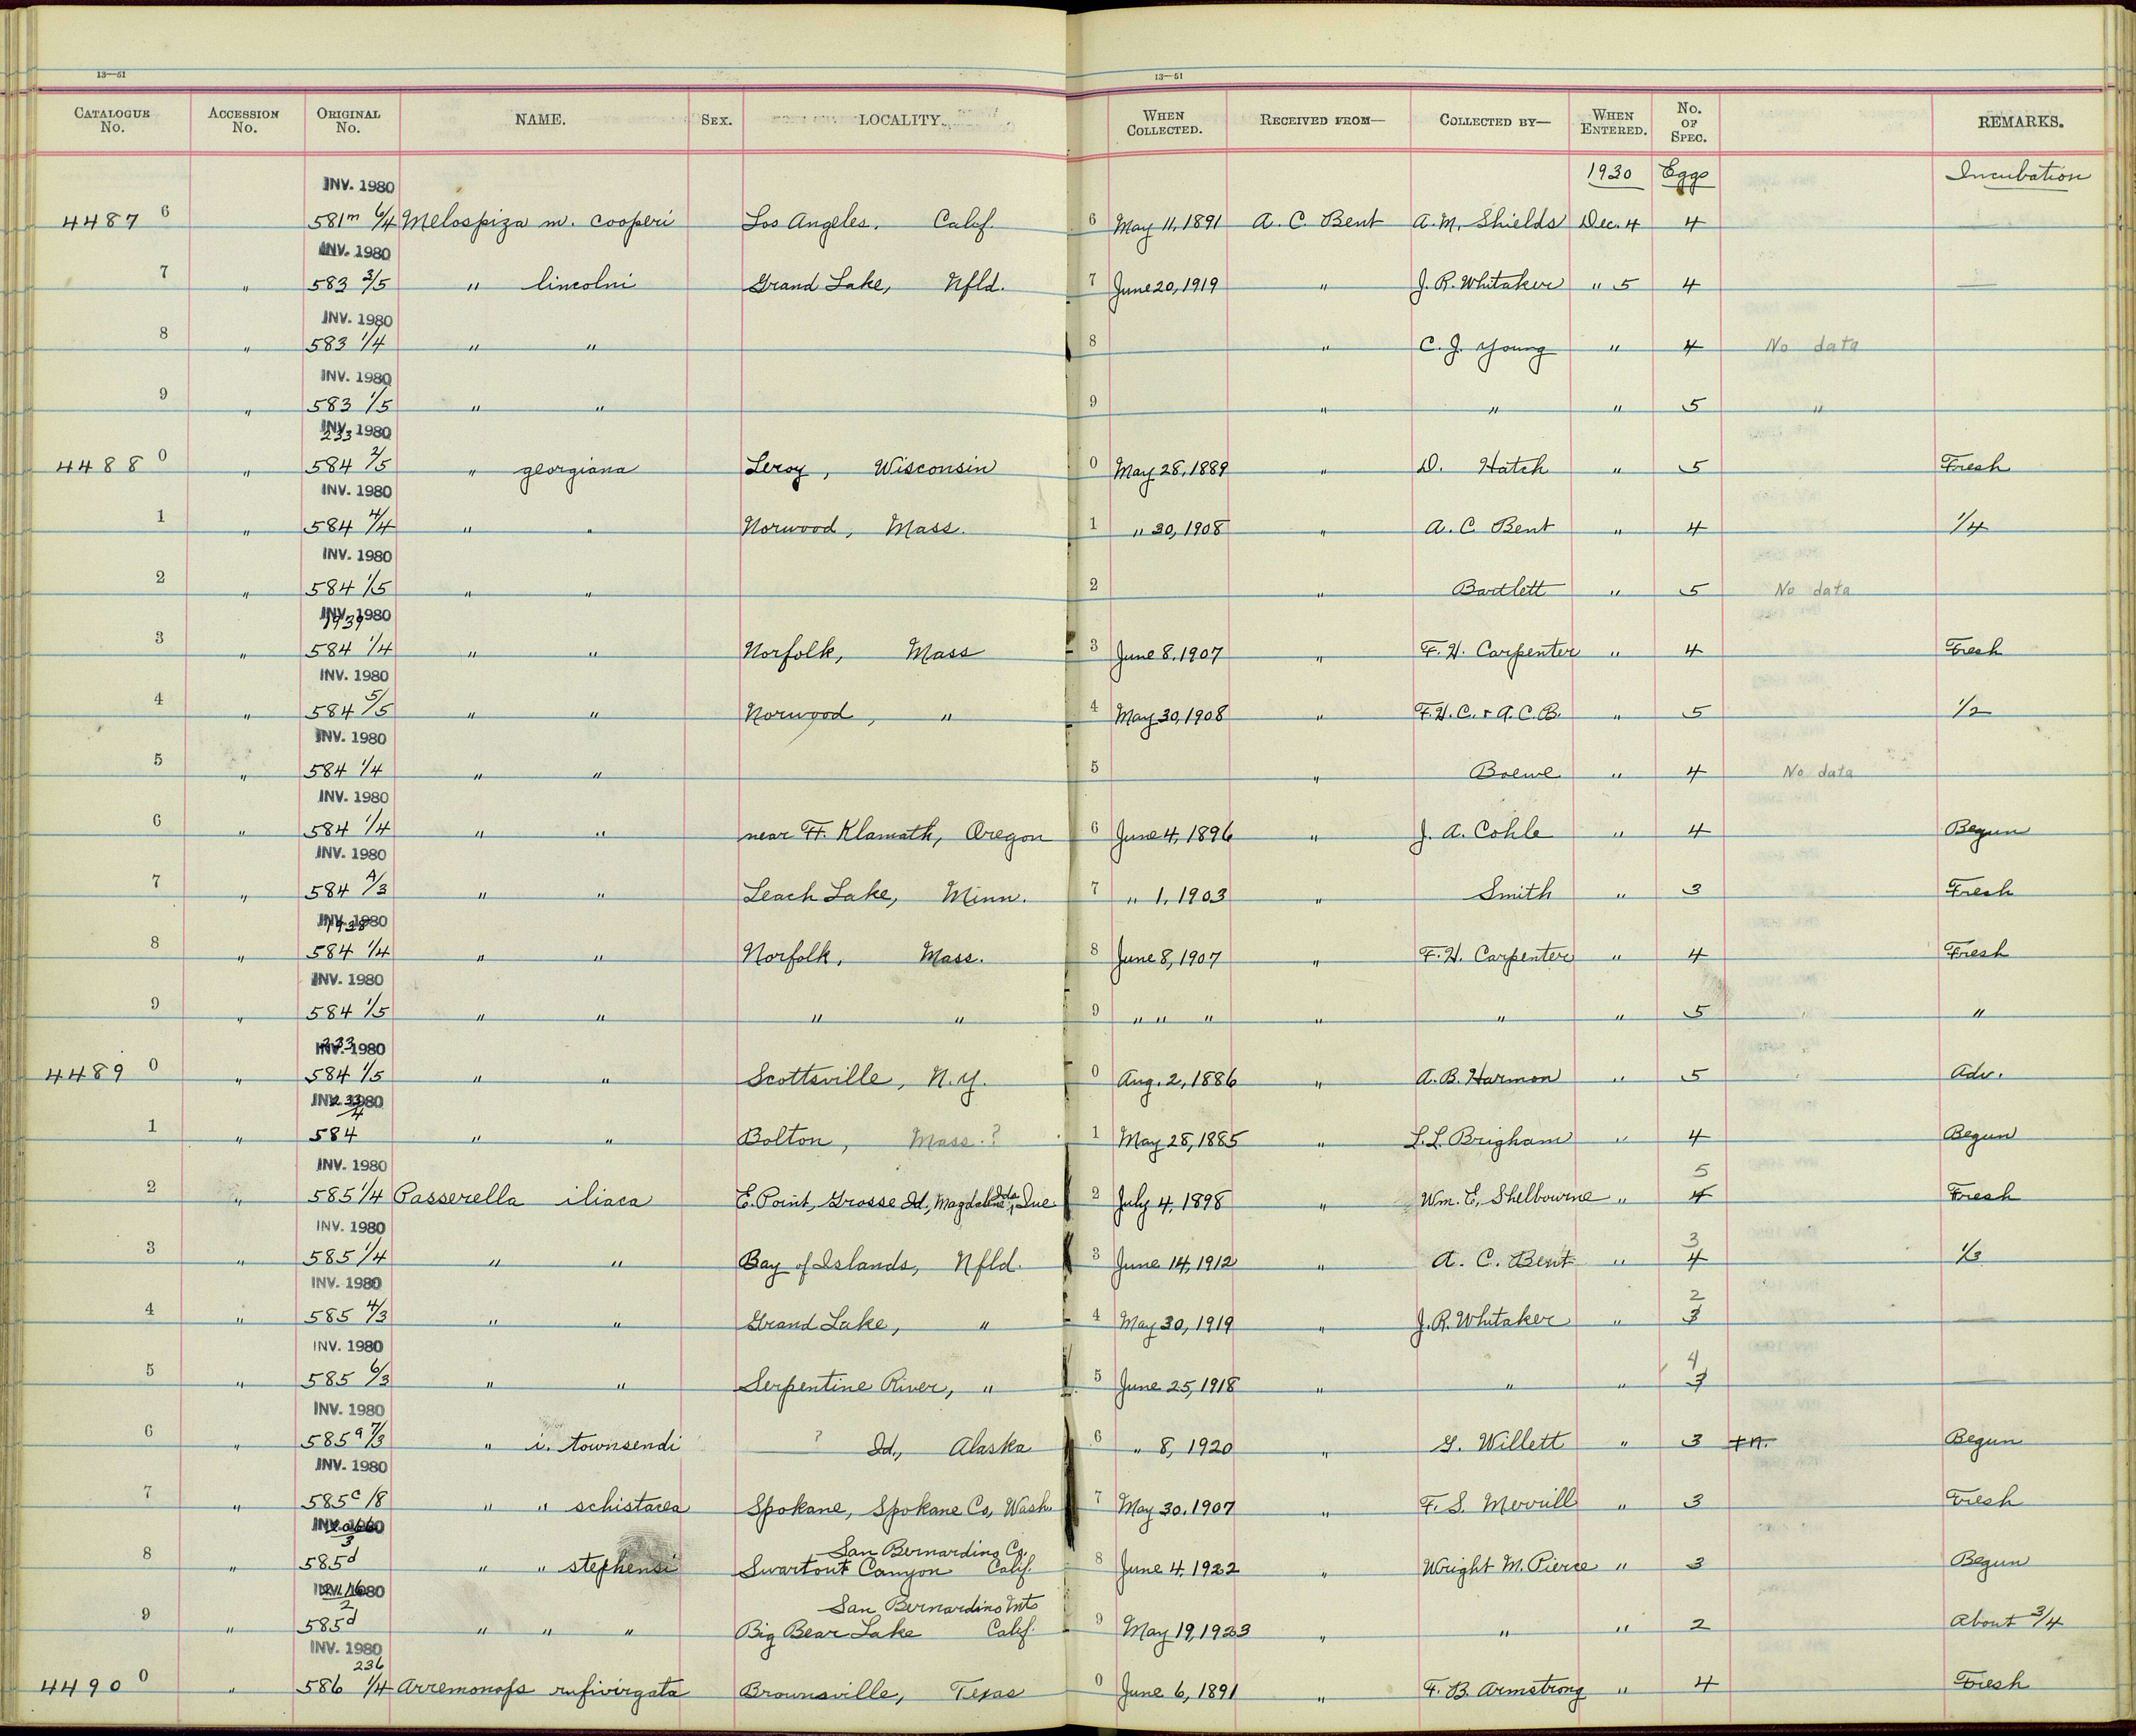 13—51 13—51
CATALOGUE No. ACCESSION No. ORIGINAL No. NAME. SEX. LOCALITY. WHEN COLLECTED. RECEIVED FROM— COLLECTED BY— WHEN ENTERED. No. OF SPEC. REMARKS.
INV. 1980 1930 Eggs Incubation
4487 6 581m 6/4 Melospiza m. cooperi Los Angeles. Calif. 6 May 11, 1891 A. C. Bent A. M. Shields Dec. 4 4
INV. 1980
7 " 583 3/5 " lincolni Grand Lake, Nfld. 7 June 20, 1919 " J. R. Whitaker " 5 4 —
INV. 1980
8 " 583 1/4 " " 8 " C. J. Young " 4 No data
INV. 1980
9 " 583 1/5 " " 9 " " " 5 "
INV. 1980
233
4488 0 " 584 2/5 " georgiana Leroy, Wisconsin 0 May 28, 1889 " D. Hatch " 5 Fresh
INV. 1980
1 " 584 4/4 " " Norwood, Mass. 1 " 30, 1908 " A. C Bent " 4 1/4
INV. 1980
2 " 584 1/5 " " 2 " Bartlett " 5 No data
INV. 1980
1939
3 " 584 1/4 " " Norfolk, Mass 3 June 8, 1907 " F. H. Carpenter " 4 Fresh
INV. 1980
4 " 584 5/5 " " Norwood, " 4 May 30, 1908 " F. H. C. + A. C. B. " 5 1/2
INV. 1980
5 " 584 1/4 " " 5 " " 4 No data
INV. 1980
6 " 584 1/4 " " near Ft. Klamath, Oregon 6 June 4, 1896 " J. A. Cohle " 4 Begun
INV. 1980
7 " 584 A/3 " " Leach Lake, Minn. 7 " 1, 1903 " Smith " 3 Fresh
INV. 1980
1938
8 " 584 1/4 " " Norfolk, Mass. 8 June 8, 1907 " F. H. Carpenter " 4 Fresh
INV. 1980
9 " 584 1/5 " " " " 9 " " " " " " 5 "
INV. 1980
233
4489 0 " 584 1/5 " " Scottsville, N.Y. 0 Aug. 2, 1886 " A. B. Harmon " 5 Adv.
INV. 1980
233
4
1 " 584 " " Bolton, Mass.? 1 May 28, 1885 " L. L. Brigham " 4 Begun
INV. 1980 5
2 " 585 1/4 Passerella iliaca E. Point, Grosse Id., Magdalene Ids, Que 2 July 4, 1898 " Wm. E. Shelbourne " 4 Fresh
INV. 1980 3
3 " 585 1/4 " " Bay of Islands, Nfld. 3 June 14, 1912 " A. C. Bent " 4 1/3
INV. 1980 2
4 " 585 4/3 " " Grand Lake, " 4 May 30, 1919 " J. R. Whitaker " 3 —
INV. 1980 4
5 " 585 6/3 " " Serpentine River, " 5 June 25, 1918 " " " 3 —
INV. 1980
6 " 585a 7/3 " i. townsendi ? Id., Alaska 6 " 8, 1920 " G. Willett " 3 +n. Begun
INV. 1980
7 " 585c /8 " " schistacea Spokane, Spokane Co, Wash. 7 May 30, 1907 " F. S. Merrill " 3 Fresh
INV. 1980
3 San Bernardino Co.
8 " 585d " " stephensi Swartout Canyon Calif. 8 June 4, 1922 " Wright M. Pierce " 3 Begun
INV. 1980
2 San Bernardino Mts
9 " 585d " " " Big Bear Lake Calif. 9 May 19, 1923 " " " 2 About 3/4
INV. 1980
236
4490 0 " 586 1/4 Arremonops rufivirgata Brownsville, Texas 0 June 6, 1891 " F. B. Armstrong " 4 Fresh